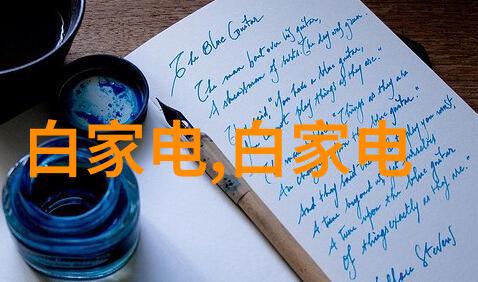 The Blue Guitar
The man bent over his guitar,
A shearsman of sorts. The day was green.
They said, "You have a blue guitar,
You do not play things as they are."
The man replied, "Things as they are
Are changed upon the blue guitar."
And they said
A tune beyond us, yet ourselves
A tune upon the blue guitar
Of things exactly as they are."
Stevens
白家电,白家电